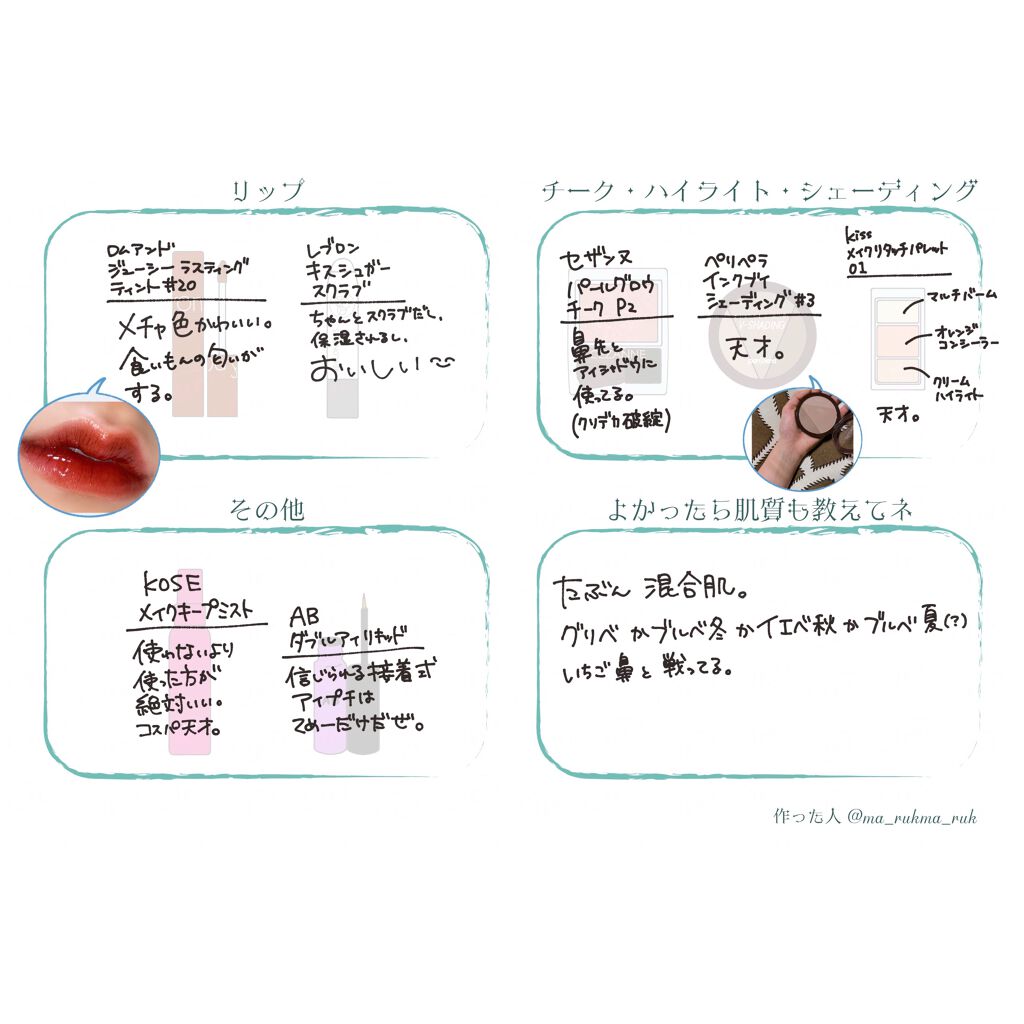 リップ
ロムアンド
ジューシーラスティング
ティント#20
メチャ色かわいい。
食いもんの匂いが
する。
レブロン
キスシュガー
スクラブ
ちゃんとスクラブだし、
保湿されるし、
おいしい
チーク・ハイライト・シェーディング
セザンヌ
パールグロウ
チーク P2
鼻先と
アイシャドウに
使ってる。
(クリデカ破綻)
ペリペラ
インクブイ
シェーディング#3
V-SHADING
天才。
kiss
メイクリタッチパレット
01
マルチバーム
オレンジ
コンシーラー
クリーム
ハイライト
天才。
その他
KOSE
メイクキープミスト
使わないより
使った方が
絶対いい。
コスパ天才。
AB
ダブルアイリキッド
信じられる接着式
アイプチは
てめーだけだぜ。
よかったら肌質も教えてネ
たぶん 混合肌。
グリベかブルベ冬かイエベ秋かブルベ夏(?)
いちご鼻と戦ってる。
作った人 @ma_rukma_ruk